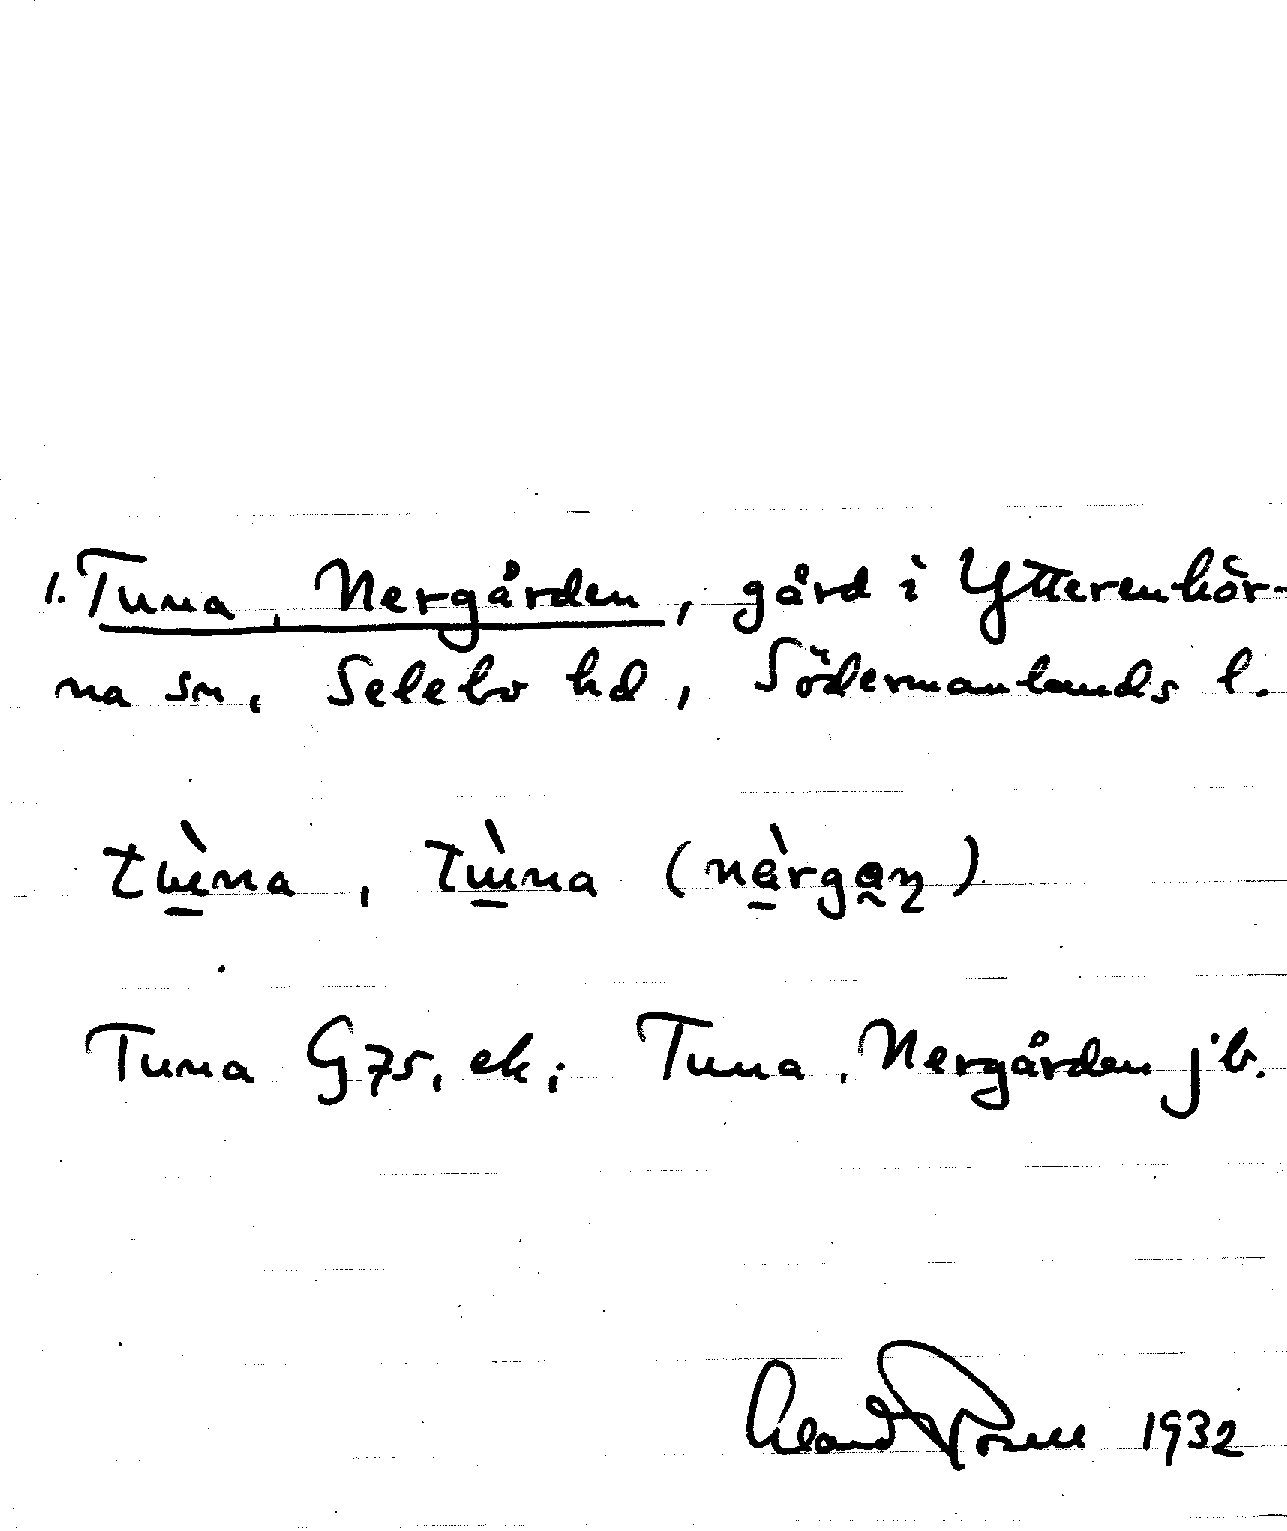 1. Tuna, Nergården, gård i Ytterenhör-
na sn, Selebo hd, Södermanlands l.
tu̱̇̀na, tu̱̇̀na (nà̱rga̰ɳ)
Tuna G75, ek; Tuna, Nergården jb.
1932